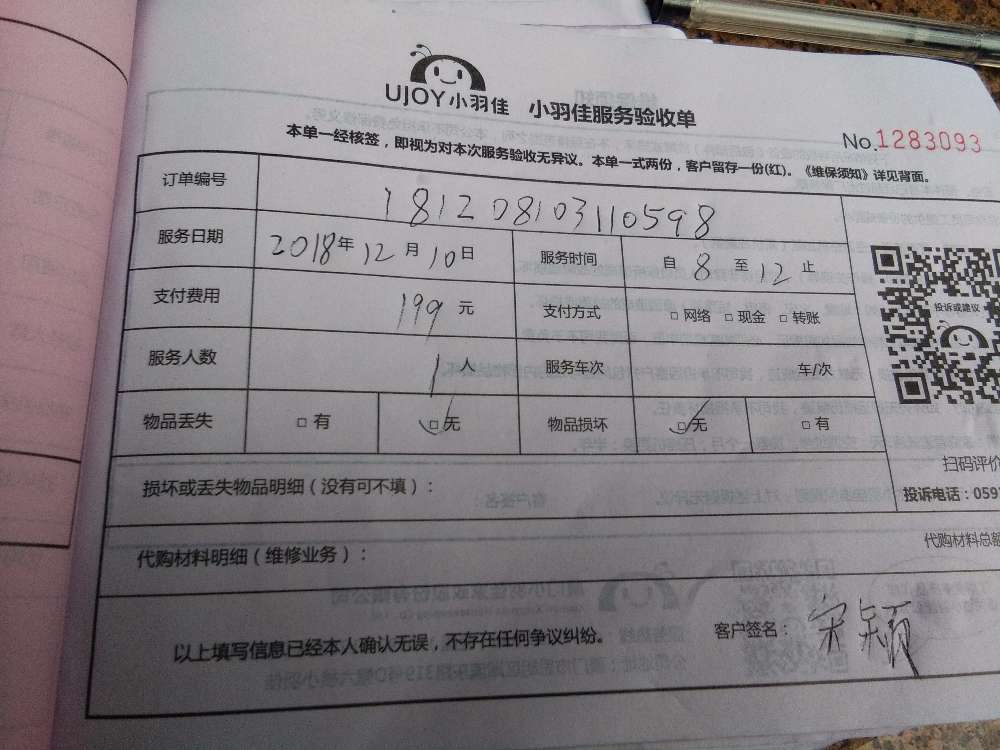 UJOY小羽佳 小羽佳服务验收单
No.1283093
本单一经核签，即视为对本次服务验收无异议。本单一式两份，客户留存一份(红)。《维保须知》详见背面。
订单编号 181208103110598
服务日期 2018年12月10日 服务时间 自8至12止
投诉或建议
支付费用 199元 支付方式 □网络 □现金 □转账
服务人数 1人 服务车次 车/次
物品丢失 □有 □无 物品损坏 □无 □有
扫码评价
损坏或丢失物品明细（没有可不填）：
投诉电话：059
代购材料明细（维修业务）：
代购材料总额
以上填写信息已经本人确认无误，不存在任何争议纠纷。 客户签名：宋颖